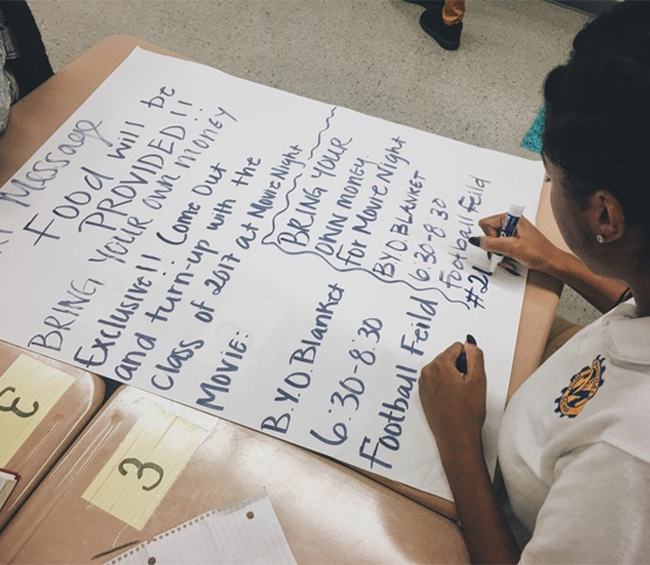 Massage
Food will be
PROVIDED!!
BRING YOUR own money
Exclusive!! Come Out
and turn-up with the
class of 2017 at Movie Night
Movie:
B.Y.O.Blanket
6:30-8:30
Football Feild
BRING YOUR
OWN MONEY.
For Movie Night
B.Y.O.BLANKET
6:30-8:30
Football Feild
#2
3
3